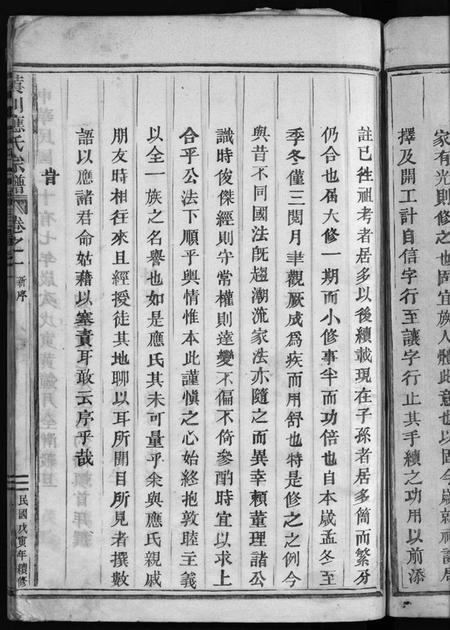 家有光則修之也固宜族人體此意也以固今歲就祠設居
擇及開工計自信字行至讓字行止其手續之功用以前添
註已徃祖考者居多以後續載現在子孫者居多簡而繁分
仍合也屆大修一期而小修事半而功倍也自本歲孟冬至
季冬僅三閱月聿觀厥成爲疾而用舒也特是修之之例今
與昔不同國法旣趨潮流家法亦隨之而異幸賴董理諸公
識時俊傑經則守常權則達變不偏不倚參酌時宜以求上
合乎公法下順乎輿情惟本此謹慎之心始終抱敦睦主義
以全一族之名譽也如是應氏其未可量乎余與應氏親戚
朋友時相徃來且經授徒其地聊以耳所聞目所見者撰數
語以應諸君命姑藉以塞責耳敢云序乎哉
旹
中華民國二十有七年歲次戊寅黃鐘月
頓首拜撰
黃川應氏宗譜
卷之一
新序
民國戊寅年續修